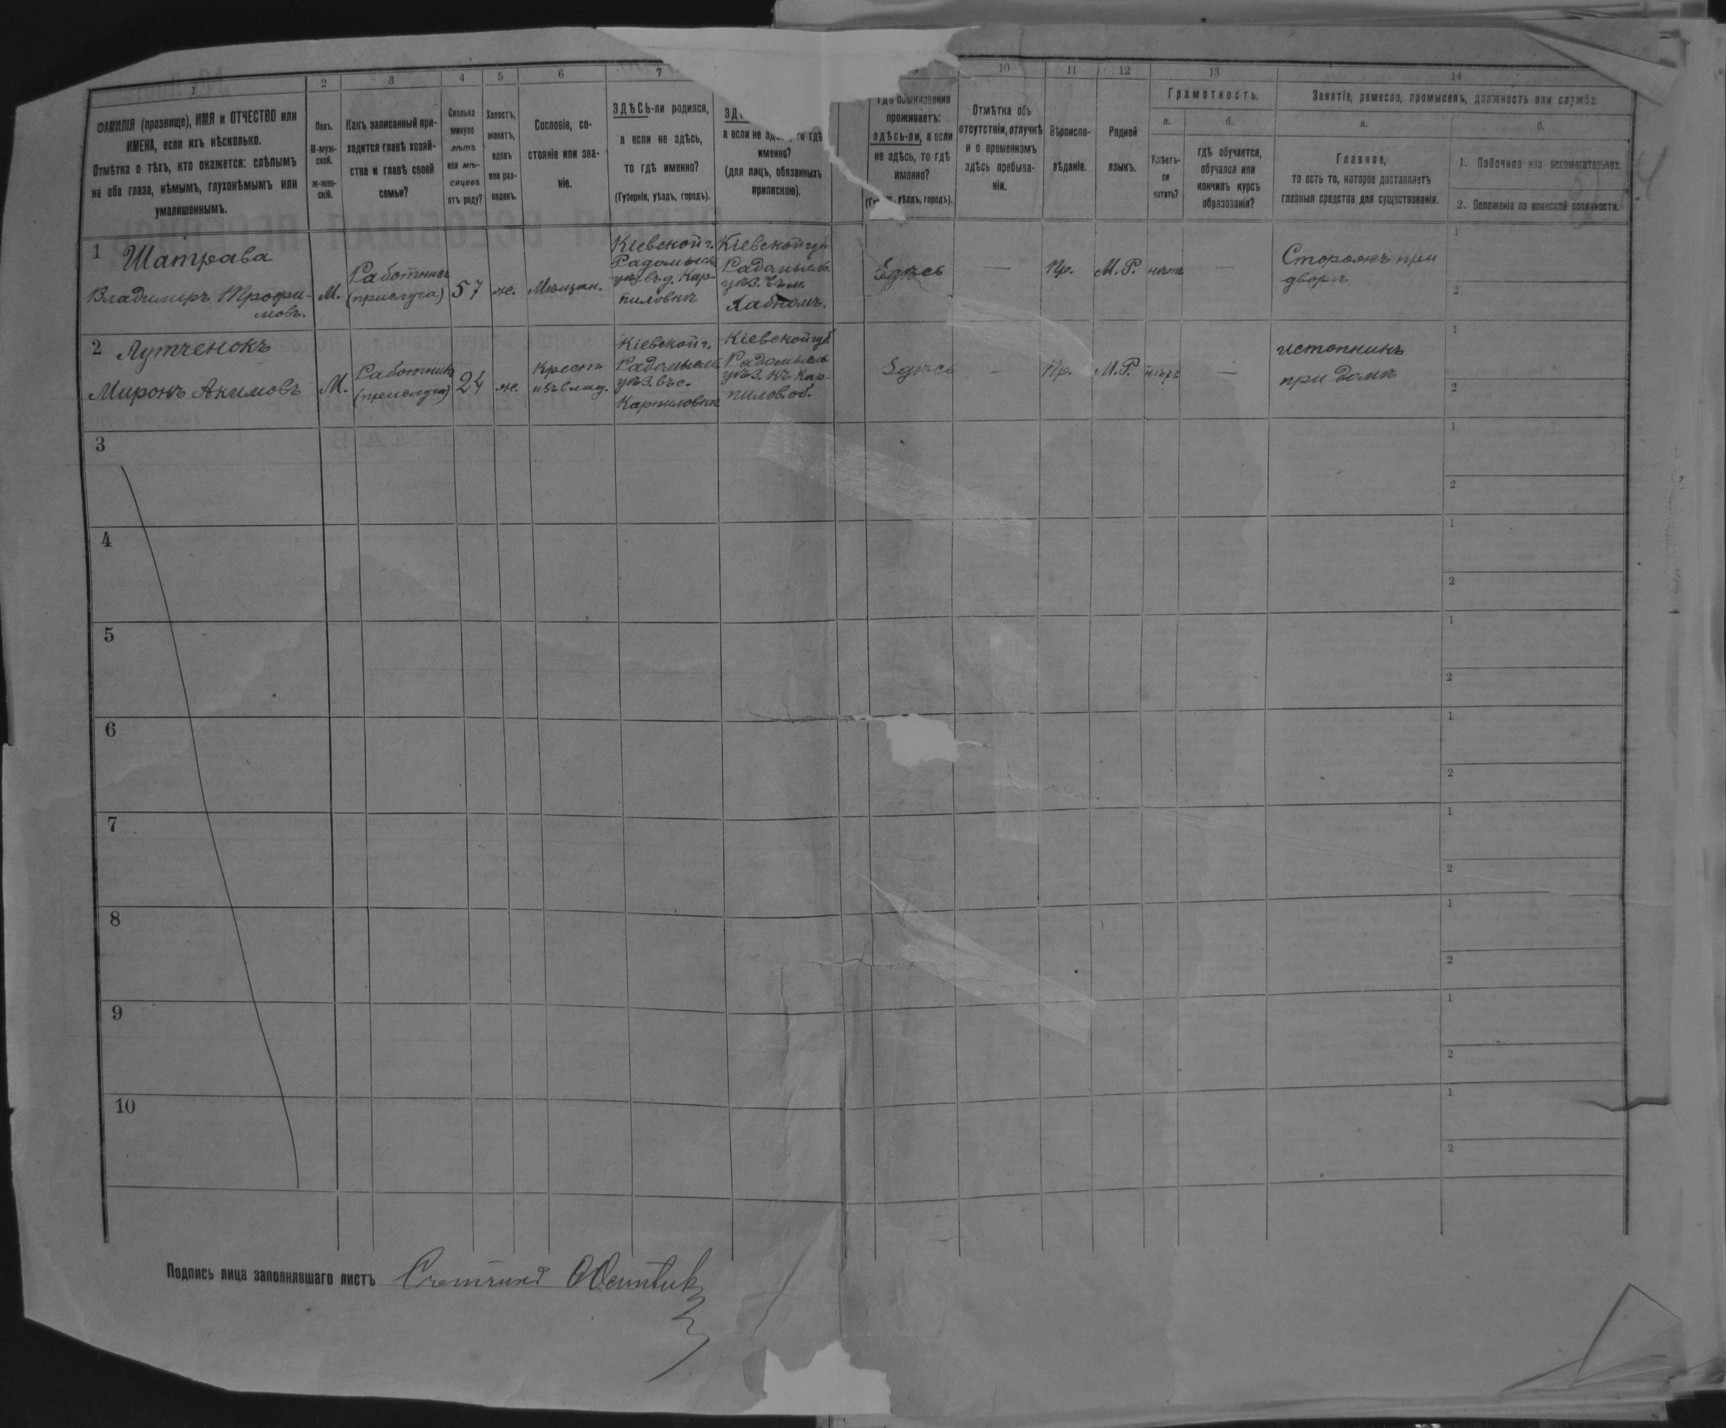 1 2 3 4 5 6 7 10 11 12 13 14
ФАМИЛІЯ (прозвище), ИМЯ и ОТЧЕСТВО или
ИМЕНА, если ихъ нѣсколько.
Отмѣтка о тѣхъ, кто окажется: слѣпымъ
на оба глаза, нѣмымъ, глухонѣмымъ или
умалишеннымъ.
Полъ.
М-муж-
ской.
ж-жен-
скій.
Какъ записанный при-
ходится главѣ хозяй-
ства и главѣ своей
семьи?
Сколько
минуло
лѣтъ
или мѣ-
сяцевъ
отъ роду?
Холостъ,
женатъ,
вдовъ
или раз-
веденъ.
Сословіе, со-
стояніе или зва-
ніе.
ЗДѢСЬ-ли родился,
а если не здѣсь,
то гдѣ именно?
(Губернія, уѣздъ, городъ).
а если не
именно?
(для лицъ, обязанныхъ
припискою).
проживаетъ:
здѣсь-ли, а если
не здѣсь, то гдѣ
именно?
уѣздъ, городъ).
Отмѣтка объ
отсутствіи, отлучкѣ
и о временномъ
здѣсь пребыва-
ніи.
Вѣроиспо-
вѣданіе.
Родной
языкъ.
Грамотность.
а.
Умѣетъ-
ли
читать?
б.
гдѣ обучается,
обучался или
кончилъ курсъ
образованія?
Занятіе, ремесло, промыселъ, должность или служба.
а.
Главное,
то есть то, которое доставляетъ
главныя средства для существованія.
б.
1. Побочное или вспомогательное.
2. Положеніе по воинской повинности.
1 Шатрава
Владимиръ Трофи-
мовъ.
М.
Работникъ
(прислуга)
57
же.
Мѣщан.
Кіевской г.
Радомысл.
уѣз. въ д. Кар-
пиловкѣ
Кіевской губ
Радомысл.
уѣз. въ м.
Хабномъ.
Здѣсь
—
Пр.
М. Р.
нѣтъ
—
Сторожъ при
дворѣ
1
2
2 Лутченокъ
Миронъ Акимовъ
М.
Работникъ
(прислуга)
24
же.
Крестн
изъ влад.
Кіевской г.
Радомысл
уѣз. въ с.
Карпиловкѣ
Кіевской губ
Радомысл
уѣз. къ Кар-
пилов. об.
Здѣсь
—
Пр.
М. Р.
нѣтъ
—
истопникъ
при домѣ
1
2
3
1
2
4
1
2
5
1
2
6
1
2
7
1
2
8
1
2
9
1
2
10
1
2
Подпись лица заполнявшаго листъ Счетчикъ